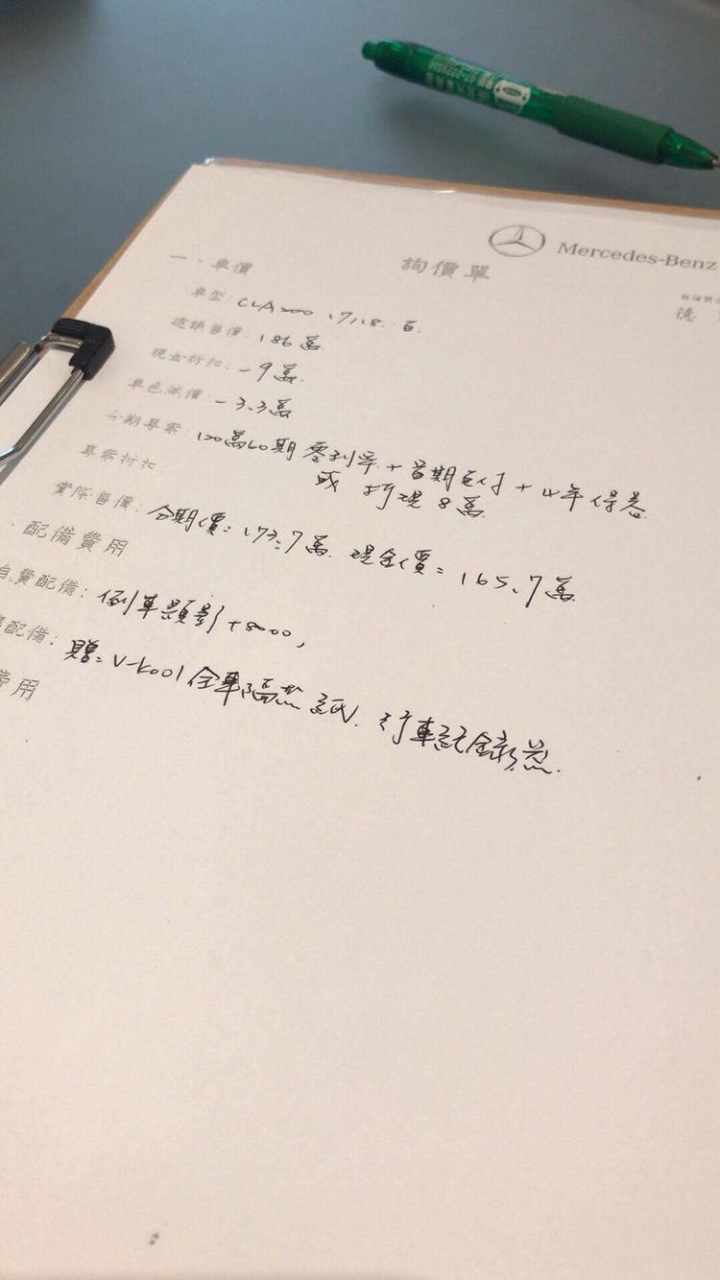 Mercedes-Benz
詢價單
一、車價
車型 CLA200 17,18. 白.
建議售價: 186萬
現金折扣: -9萬.
車色減價 -3.3萬
分期專案: 100萬60期 零利率 + 首期免付 + 4年保養
或 折現 8萬
專案折扣:
實際售價: 分期價: 173.7萬. 現金價= 165.7萬
、配備費用
自費配備: 倒車顯影+8000,
配備: 贈: V-kool 全車隔熱紙. 行車記錄器.
費用